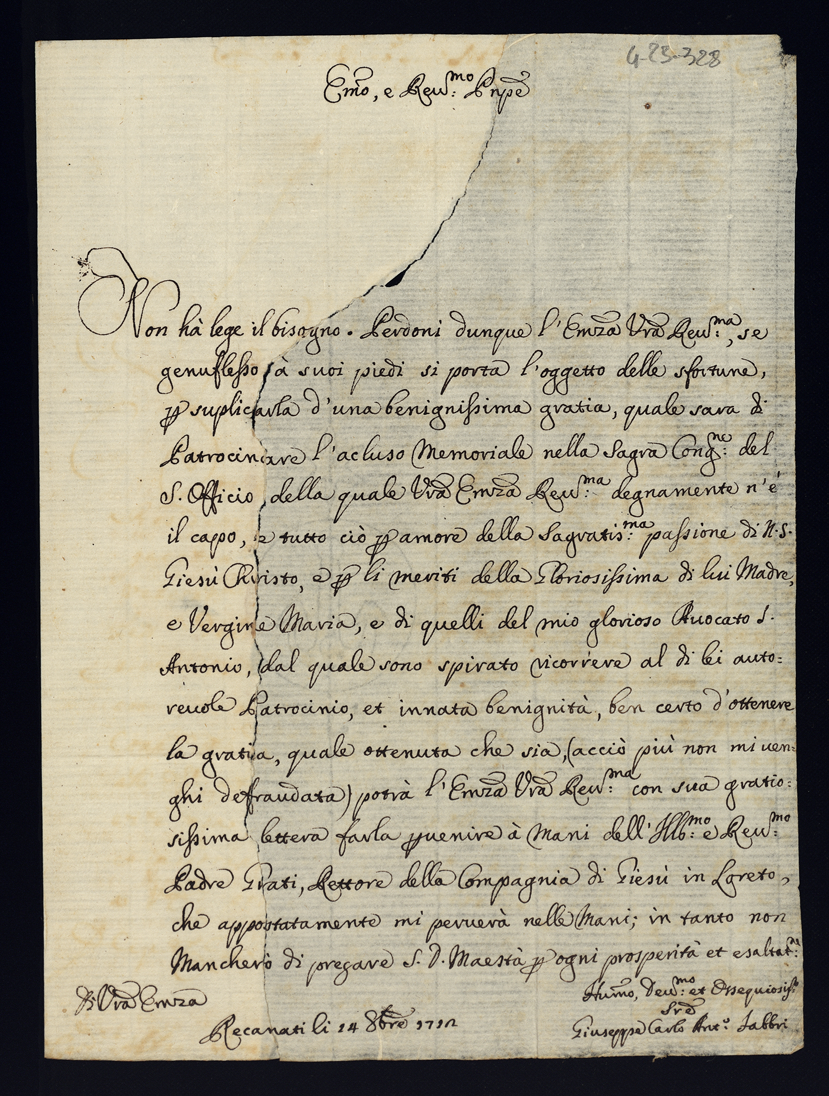 4-23-328
Em̃o, e Reu:ᵐᵒ Pñpe
Non hà lege il bisogno. Perdoni dunque l'Emza Vr̃a Reu:ᵐᵃ, se
genuflesso à suoi piedi si porta l'oggetto delle sfortune,
ꝑ suplicarla d'una benignissima gratia, quale sara di
Patrocinare l'acluso Memoriale nella Sagra Cong:ⁿᵉ del
S. Officio, della quale Vr̃a Emza Reu:ᵐᵃ degnamente n'é
il capo, e tutto ciò ꝑ amore della Sagratis:ᵐᵃ passione di N.S.
Giesù Christo, e ꝑ li meriti della Gloriosissima di lui Madre,
e Vergine Maria, e di quelli del mio glorioso Auocato S.
Antonio, dal quale sono spirato ricorrere al di lei auto:
reuole Patrocinio, et innata benignità, ben certo d'ottenere
la gratia, quale ottenuta che sia, (acciò più non mi uen:
ghi defraudata) potrà l'Emza Vr̃a Reu:ᵐᵃ con sua gratio:
sissima lettera farla ꝑuenire à Mani dell'Illb:ᵐᵒ e Reu:ᵐᵒ
Padre Grati, Rettore della Compagnia di Giesù in Lgreto,
che appostatamente mi peruerà nelle Mani; in tanto non
Mancherò di pregare S. D. Maestà ꝑ ogni prosperità et esaltat:ⁿᵉ
Di Vr̃a Emza
Hum̃o, Deu:ᵐᵒ et Ossequiosis:ᵒ
Sr̃e
Recanati li 14 8bre
Giuseppe Carlo Ant:ᵒ Fabbri